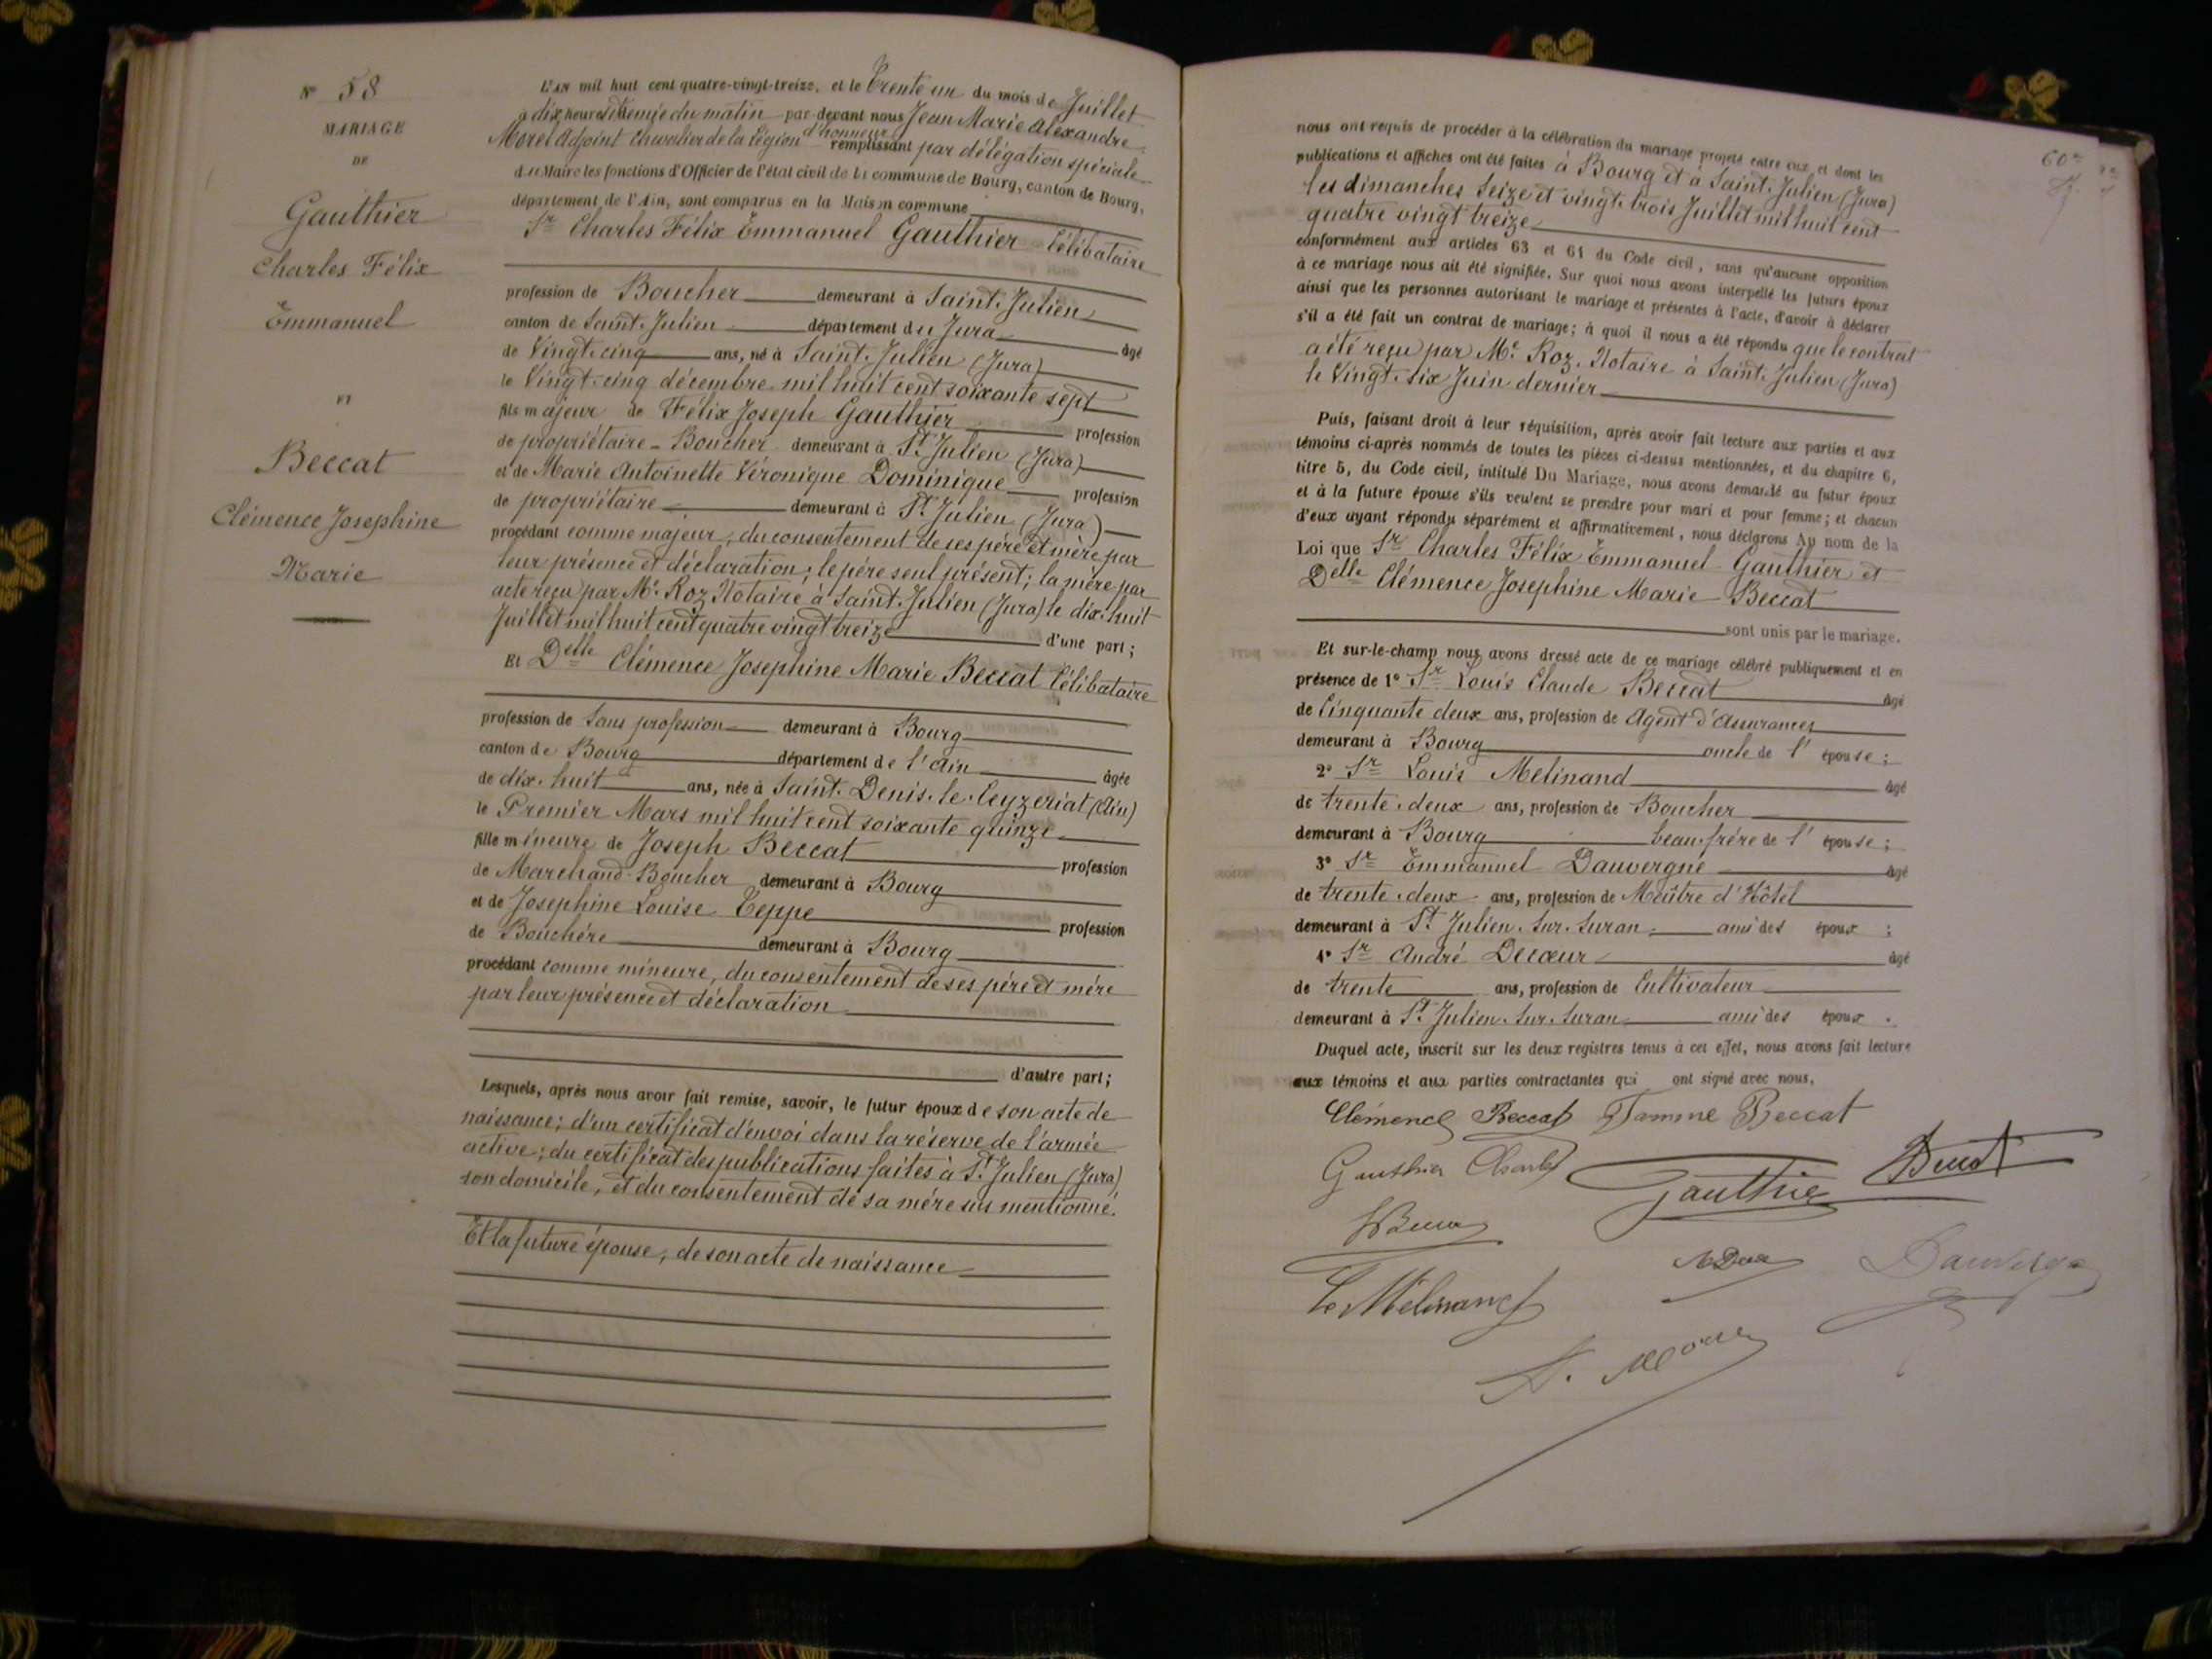 Nº 58
MARIAGE
DE
Gauthier
Charles Félix
Emmanuel
ET
Beccat
Clémence Josephine
Marie
L'AN mil huit cent quatre-vingt-treize, et le Trente un du mois de Juillet
à dix heures et demie du matin par-devant nous Jean Marie Alexandre
Morel Adjoint Chevalier de la Légion d'honneur remplissant par délégation spéciale
du Maire les fonctions d'Officier de l'état civil de la commune de Bourg, canton de Bourg,
département de l'Ain, sont comparus en la Maison commune
Sr Charles Félix Emmanuel Gauthier Célibataire
profession de Boucher demeurant à Saint-Julien
canton de Saint-Julien département du Jura âgé
de Vingt-cinq ans, né à Saint-Julien (Jura)
le Vingt-cinq décembre mil huit cent soixante sept
fils majeur de Félix Joseph Gauthier profession
de propriétaire-Boucher demeurant à St Julien (Jura)
et de Marie Antoinette Véronique Dominique profession
de propriétaire demeurant à St Julien (Jura)
procédant comme majeur, du consentement de ses père et mère par
leur présence et déclaration; le père seul présent; la mère par
acte reçu par Me Roz Notaire à Saint-Julien (Jura) le dix-huit
Juillet mil huit cent quatre vingt treize d'une part;
Et Delle Clémence Josephine Marie Beccat Célibataire
profession de Sans profession demeurant à Bourg
canton de Bourg département de l'Ain âgée
de dix-huit ans, née à Saint-Denis-le-Ceyzeriat (Ain)
le Premier Mars mil huit cent soixante quinze
fille mineure de Joseph Beccat profession
de Marchand-Boucher demeurant à Bourg
et de Josephine Louise Teppe profession
de Bouchère demeurant à Bourg
procédant comme mineure, du consentement de ses père et mère
par leur présence et déclaration
d'autre part;
Lesquels, après nous avoir fait remise, savoir, le futur époux de son acte de
naissance; d'un certificat d'envoi dans la réserve de l'armée
active; du certificat des publications faites à St Julien (Jura)
son domicile, et du consentement de sa mère sus mentionné.
Et la future épouse, de son acte de naissance
60e
nous ont requis de procéder à la célébration du mariage projeté entre eux et dont les
publications et affiches ont été faites à Bourg et à Saint-Julien (Jura)
les dimanches Seize et vingt-trois Juillet mil huit cent
quatre vingt treize
conformément aux articles 63 et 64 du Code civil, sans qu'aucune opposition
à ce mariage nous ait été signifiée. Sur quoi nous avons interpellé les futurs époux
ainsi que les personnes autorisant le mariage et présentes à l'acte, d'avoir à déclarer
s'il a été fait un contrat de mariage; à quoi il nous a été répondu que le contrat
a été reçu par Me Roz, Notaire à Saint-Julien (Jura)
le Vingt-six Juin dernier
Puis, faisant droit à leur réquisition, après avoir fait lecture aux parties et aux
témoins ci-après nommés de toutes les pièces ci-dessus mentionnées, et du chapitre 6,
titre 5, du Code civil, intitulé Du Mariage, nous avons demandé au futur époux
et à la future épouse s'ils veulent se prendre pour mari et pour femme; et chacun
d'eux ayant répondu séparément et affirmativement, nous déclarons Au nom de la
Loi que Sr Charles Félix Emmanuel Gauthier et
Delle Clémence Josephine Marie Beccat
sont unis par le mariage.
Et sur-le-champ nous avons dressé acte de ce mariage célébré publiquement et en
présence de 1º Sr Louis Claude Beccat âgé
de Cinquante deux ans, profession de Agent d'Assurances
demeurant à Bourg oncle de l'épouse;
2º Sr Louis Melinand âgé
de trente-deux ans, profession de Boucher
demeurant à Bourg beau-frère de l'épouse;
3º Sr Emmanuel Dauvergne âgé
de trente-deux ans, profession de Meûtre d'Hôtel
demeurant à St Julien-Sur-Suran ami des époux;
4º Sr André Decœur âgé
de trente ans, profession de Cultivateur
demeurant à St Julien-Sur-Suran ami des époux.
Duquel acte, inscrit sur les deux registres tenus à cet effet, nous avons fait lecture
aux témoins et aux parties contractantes qui ont signé avec nous.
Clémence Beccat Famme Beccat
Gauthier Charles
Gauthier
Melinand
Dauvergne